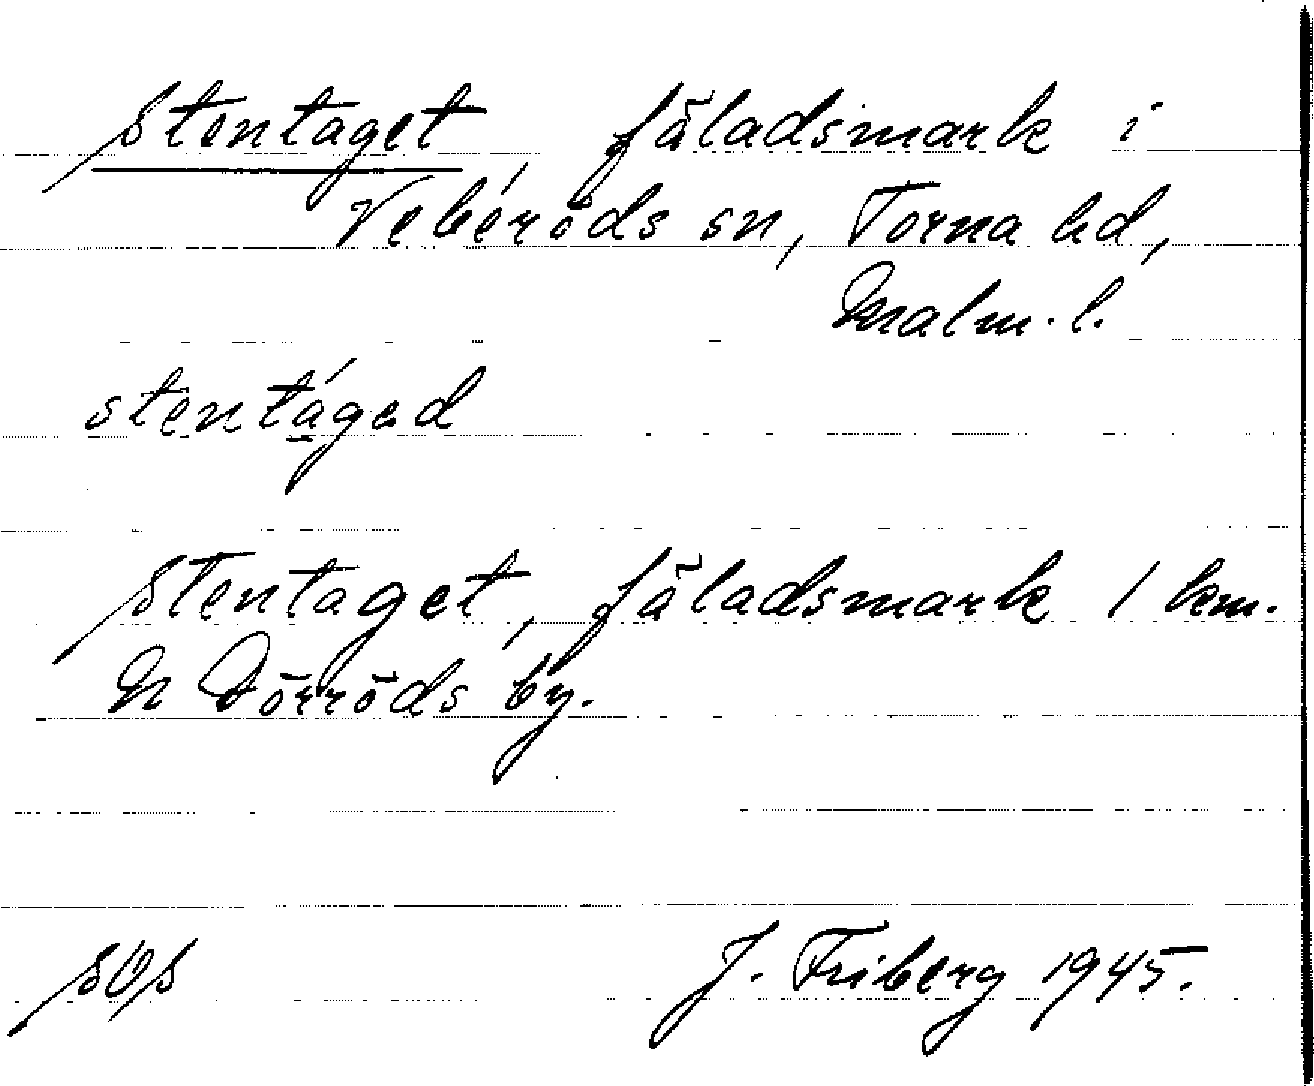 Stentaget, fäladsmark i
Veberöds sn, Torna hd,
Malm. l.
stentáged
Stentaget, fäladsmark 1 km.
N Dörröds by.
J. Friberg 1945.